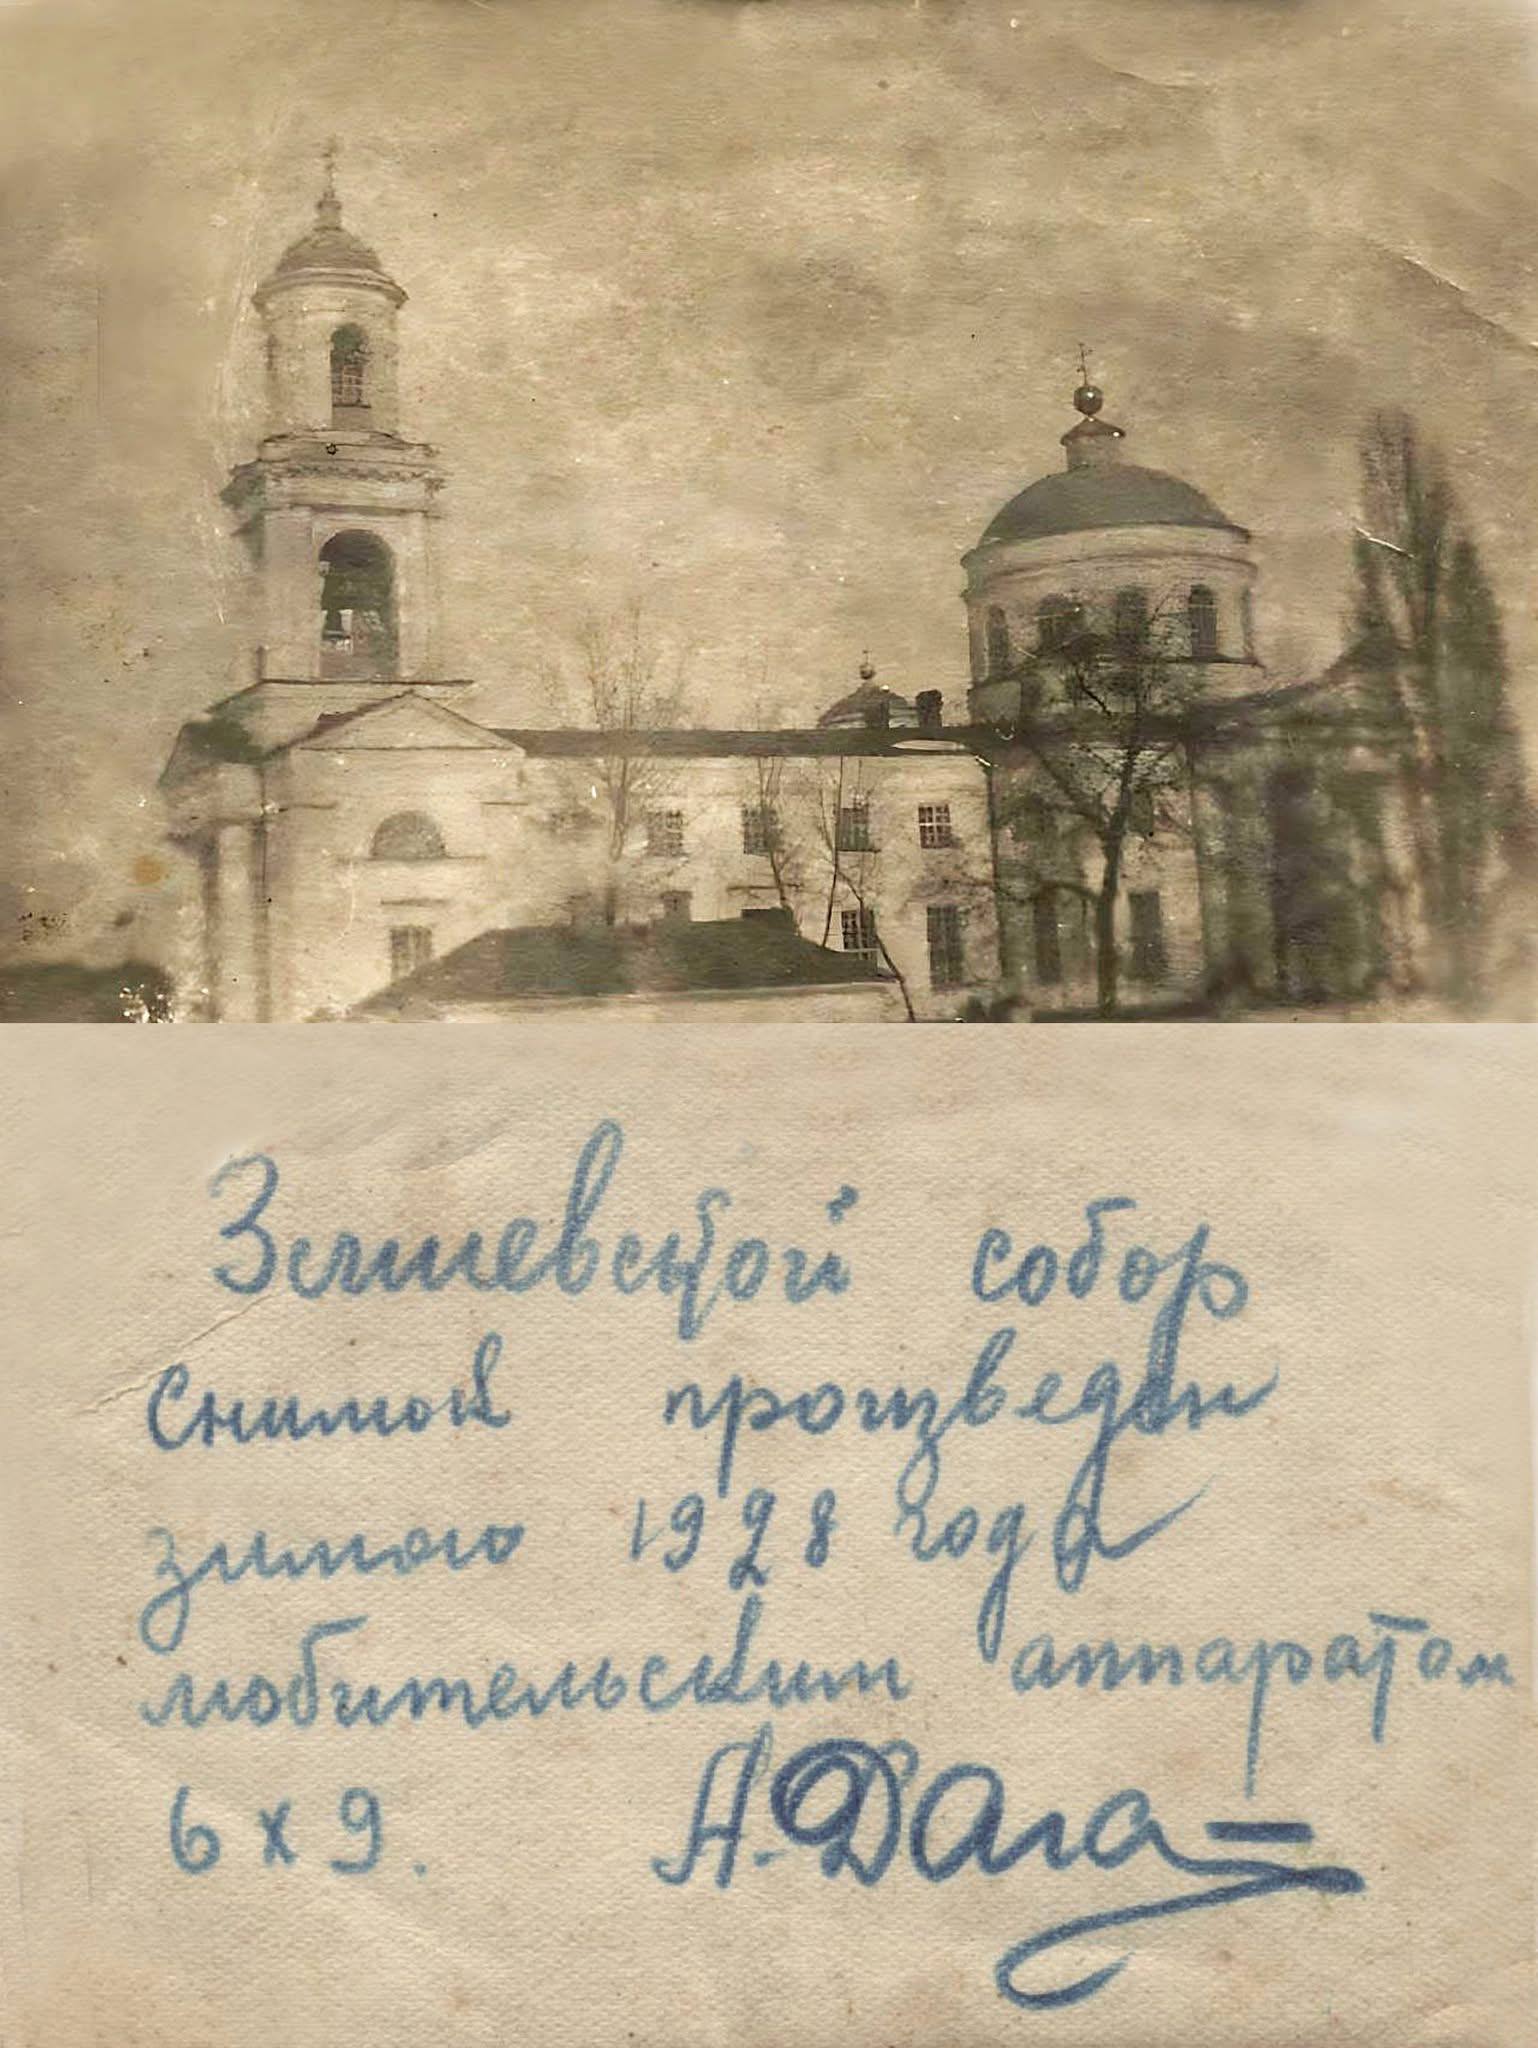 Змиевской собор
Снимок произведен
зимою 1928 года
любительским аппаратом
6 х 9. А.